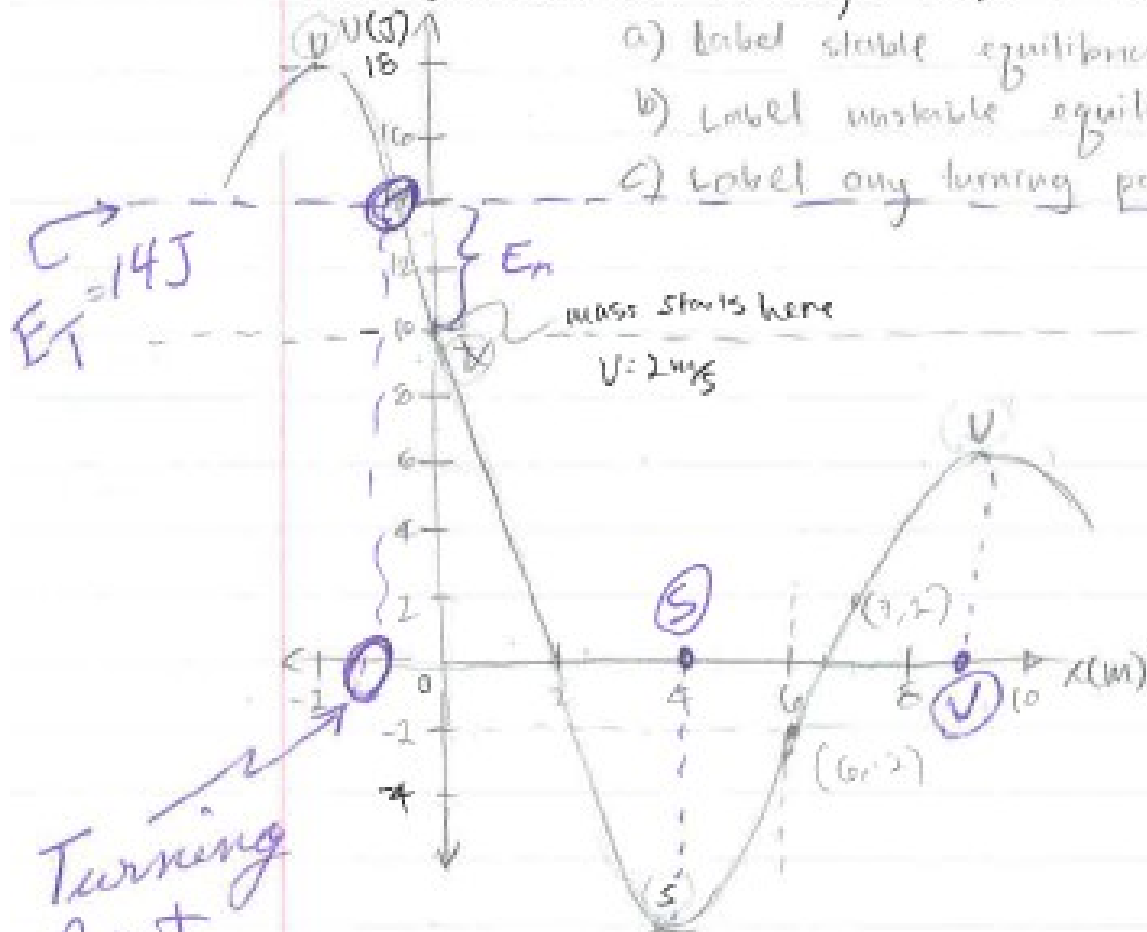 U U(J)
a) Label stable equilibri
18
b) Label unstable equil
16
c) Label any turning po
E_T = 14J
12
E_n
10
mass starts here
V = 2 m/s
8
U
6
4
2
S
(7,2)
-2
0
2
4
6
8
10
x(m)
U
-2
(6,-2)
-4
Turning
S